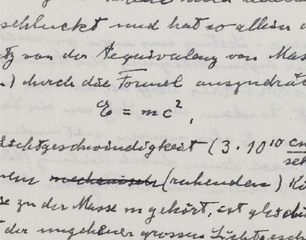 schluckt und hat so allein d
tz von der Aequivalenz von Mas
) durch die Formel ausgedrückt
E = mc²,
ichtgeschwindigkeit (3 · 10¹⁰ cm/sek
nem mechanisch (ruhenden) Kö
ie zu der Masse m gehört, ist gleich
der ungeheuer grossen Lichtgesch